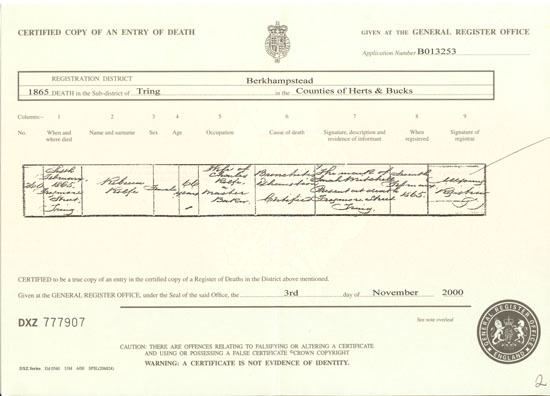 CERTIFIED COPY OF AN ENTRY OF DEATH
GIVEN AT THE GENERAL REGISTER OFFICE
Application Number B013253
REGISTRATION DISTRICT Berkhampstead
1865 DEATH in the Sub-district of Tring in the Counties of Herts & Bucks
Columns:- 1 2 3 4 5 6 7 8 9
No. When and where died Name and surname Sex Age Occupation Cause of death Signature, description and residence of informant When registered Signature of registrar
February 1865. Frogmore Street Tring
Rebecca Rolfe
Female
years
Wife of Charles Rolfe Master Baker
Bronchitis Certified
The mark of Sarah Present at death Frogmore Street Tring
1865.
Registrar
CERTIFIED to be a true copy of an entry in the certified copy of a Register of Deaths in the District above mentioned.
Given at the GENERAL REGISTER OFFICE, under the Seal of the said Office, the 3rd day of November 2000
DXZ 777907
See note overleaf
CAUTION: THERE ARE OFFENCES RELATING TO FALSIFYING OR ALTERING A CERTIFICATE
AND USING OR POSSESSING A FALSE CERTIFICATE ©CROWN COPYRIGHT
WARNING: A CERTIFICATE IS NOT EVIDENCE OF IDENTITY.
GENERAL REGISTER OFFICE
ENGLAND
DXZ Series
2